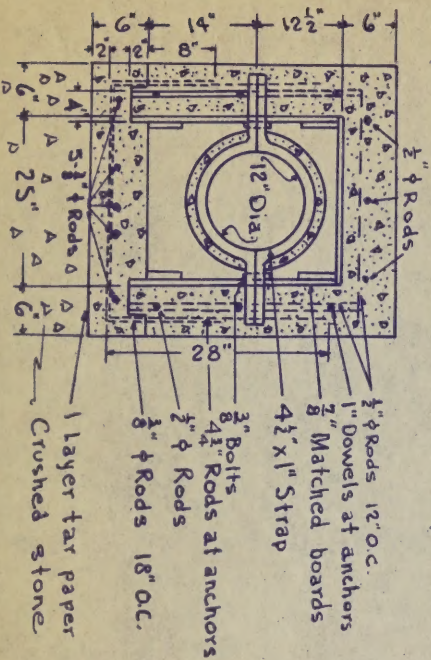 6" 14" 12½" 6"
2" 2" 8"
6"
4"
25"
6"
12" Dia.
28"
½" ϕ Rods
5-⅜" ϕ Rods
½" ϕ Rods 12" O.C.
1" Dowels at anchors
⅞" Matched boards
4½" x 1" Strap
¾" Bolts
4¾" Rods at anchors
½" ϕ Rods
⅜" ϕ Rods 18" O.C.
1 Layer tar paper
Crushed stone